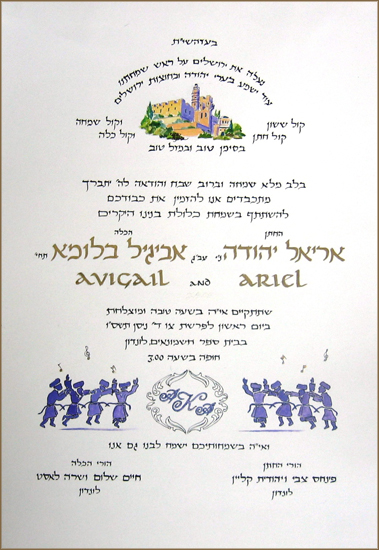 בעזהשי״ת
נעלה את ירושלים על ראש שמחתנו
עוד ישמע בערי יהודה ובחוצות ירושלים
קול ששון וקול שמחה
קול חתן וקול כלה
בסימן טוב ובמזל טוב
בלב מלא שמחה וברוב שבח והודאה לה׳ יתברך
מתכבדים אנו להזמין את כבודכם
להשתתף בשמחת כלולת בנינו היקרים
החתן הכלה
אריאל יהודה ני׳ עב״ג אביגיל בלומא תחי׳
AVIGAIL AND ARIEL
שתתקיים אי״ה בשעה טובה ומוצלחת
ביום ראשון לפרשת צו ד׳ ניסן תשס״ו
בבית ספר חשמונאים, לונדון
חופה בשעה 3.00
AKA
ואי״ה בשמחותיכם ישמח לבנו גם אנו
הורי החתן
פינחס צבי ויהודית קליין
לונדון
הורי הכלה
חיים שלום ושרה לאסט
לונדון